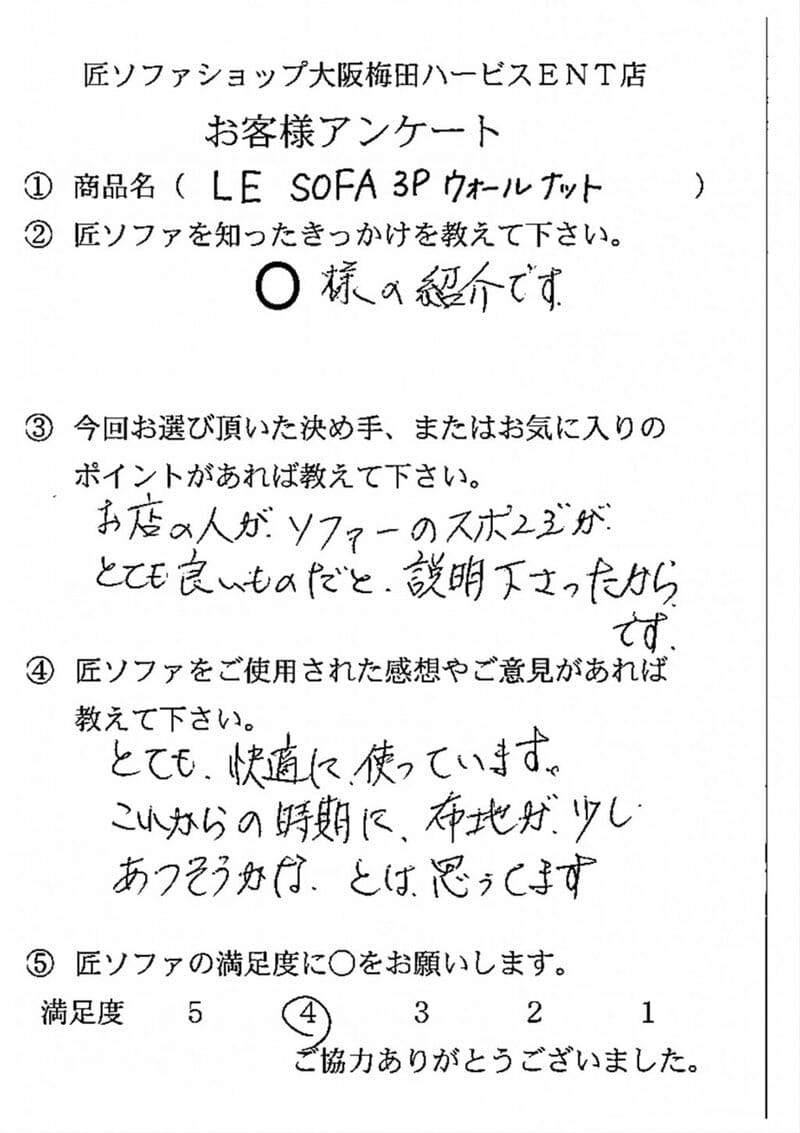 匠ソファショップ大阪梅田ハービスENT店
お客様アンケート
① 商品名（ LE SOFA 3P ウォールナット ）
② 匠ソファを知ったきっかけを教えて下さい。
〇 様の紹介です.
③ 今回お選び頂いた決め手、またはお気に入りの
ポイントがあれば教えて下さい。
お店の人が、ソファーのスポンヂが、
とても良いものだと、説明下さったから
です.
④ 匠ソファをご使用された感想やご意見があれば
教えて下さい。
とても、快適に、使っています。
これからの時期に、布地が、少し
あつそうかな、とは、思ってます
⑤ 匠ソファの満足度に〇をお願いします。
満足度 5 4 3 2 1
ご協力ありがとうございました。